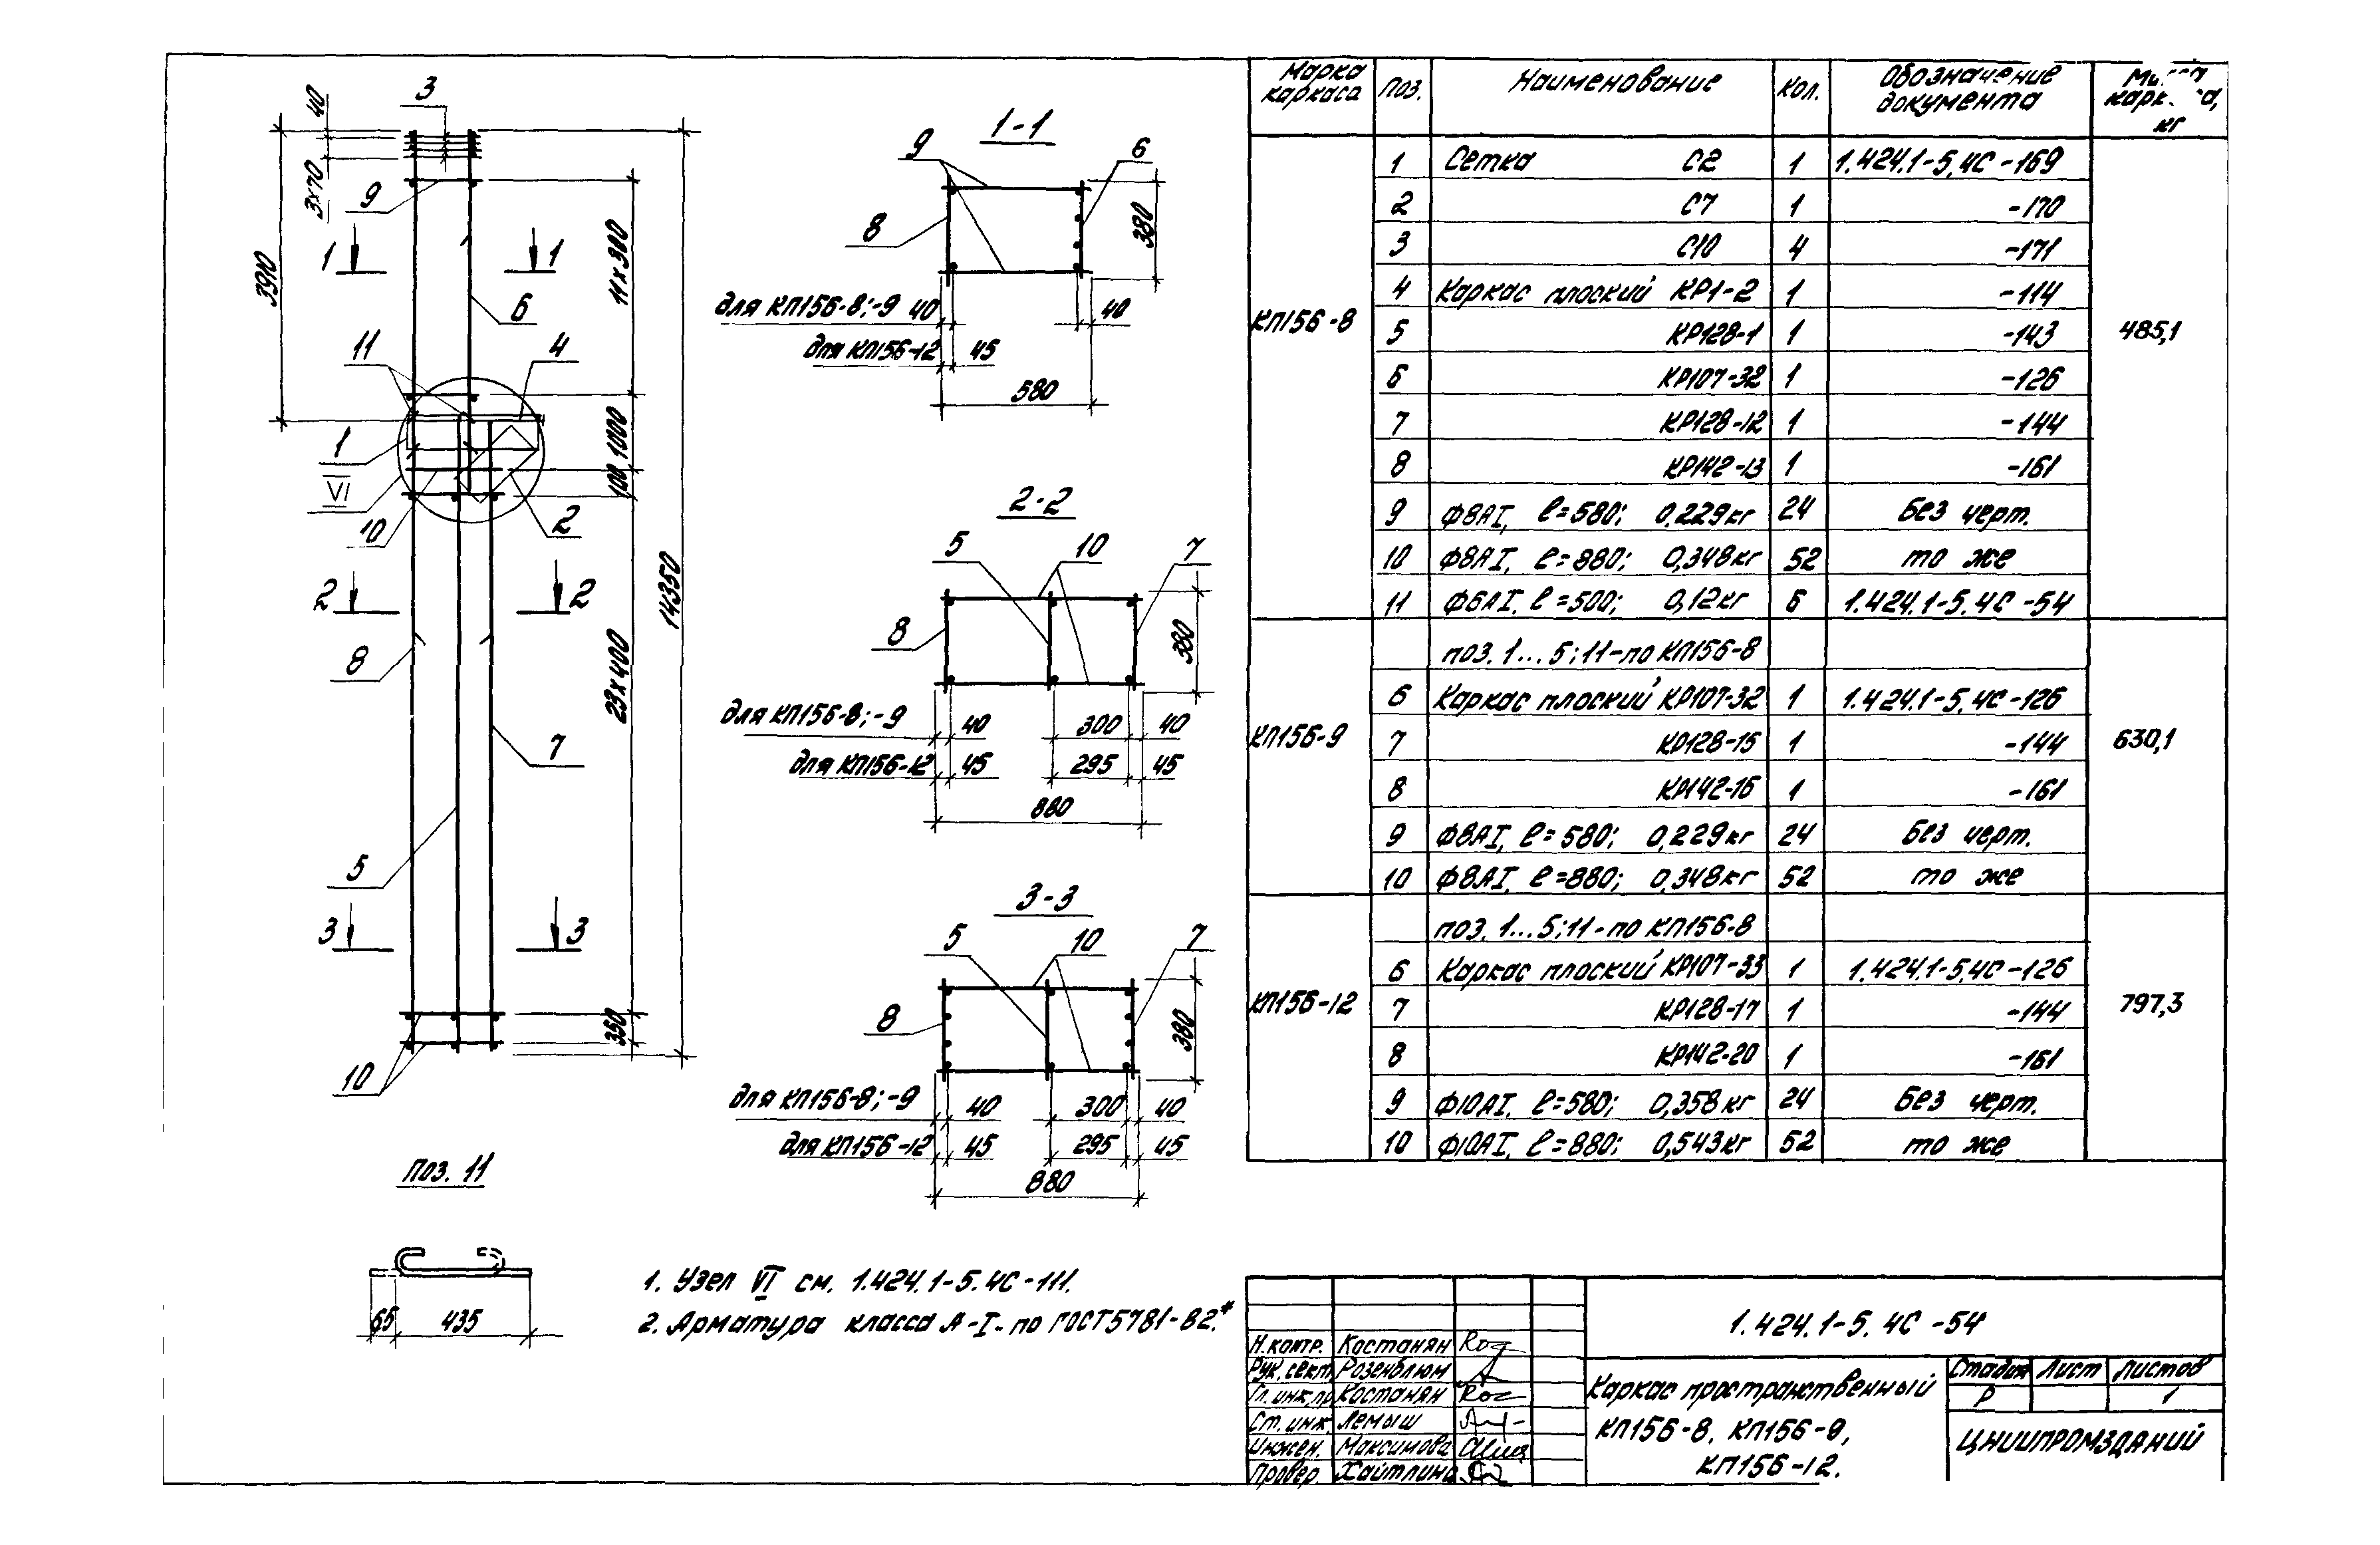 3
40
3×70
3910
9
1 1
11×300
6
11
4
1
VI
1000
100
10
2
2 2
14350
8
23×400
7
5
3 3
350
10
Поз. 11
65 435
1-1
9
6
8
380
для КП156-8; -9 40
40
для КП156-12 45
580
2-2
5 10 7
8
380
для КП156-8; -9 40 300 40
для КП156-12 45 295 45
880
3-3
5 10 7
8
380
для КП156-8; -9 40 300 40
для КП156-12 45 295 45
880
1. Узел VI см. 1.424.1-5.4С-111.
2. Арматура класса А-I-по ГОСТ 5781-82.*
Марка каркаса Поз. Наименование Кол. Обозначение документа кг
КП156-8 485,1
1 Сетка С2 1 1.424.1-5.4С-169
2 С7 1 -170
3 С10 4 -171
4 Каркас плоский КР1-2 1 -114
5 КР128-1 1 -143
6 КР107-32 1 -126
7 КР128-12 1 -144
8 КР142-13 1 -161
9 Ф8АI, ℓ=580; 0,229кг 24 Без черт.
10 Ф8АI, ℓ=880; 0,348кг 52 то же
11 Ф6АI, ℓ=500; 0,12кг 6 1.424.1-5.4С-54
КП156-9 630,1
поз. 1...5; 11-по КП156-8
6 Каркас плоский КР107-32 1 1.424.1-5.4С-126
7 КР128-15 1 -144
8 КР142-16 1 -161
9 Ф8АI, ℓ=580; 0,229кг 24 Без черт.
10 Ф8АI, ℓ=880; 0,348кг 52 то же
КП156-12 797,3
поз. 1...5; 11-по КП156-8
6 Каркас плоский КР107-33 1 1.424.1-5.4С-126
7 КР128-17 1 -144
8 КР142-20 1 -161
9 Ф10АI, ℓ=580; 0,358кг 24 Без черт.
10 Ф10АI, ℓ=880; 0,543кг 52 то же
1.424.1-5.4С-54
Н.контр. Костанян
Рук.сект. Розенблюм
Гл.инж.пр. Костанян
Ст.инж. Лемыш
Инжен. Максимова
Провер. Хайтлина
Каркас пространственный
КП156-8, КП156-9,
КП156-12.
Стадия Лист Листов
Р 1
ЦНИИПРОМЗДАНИЙ